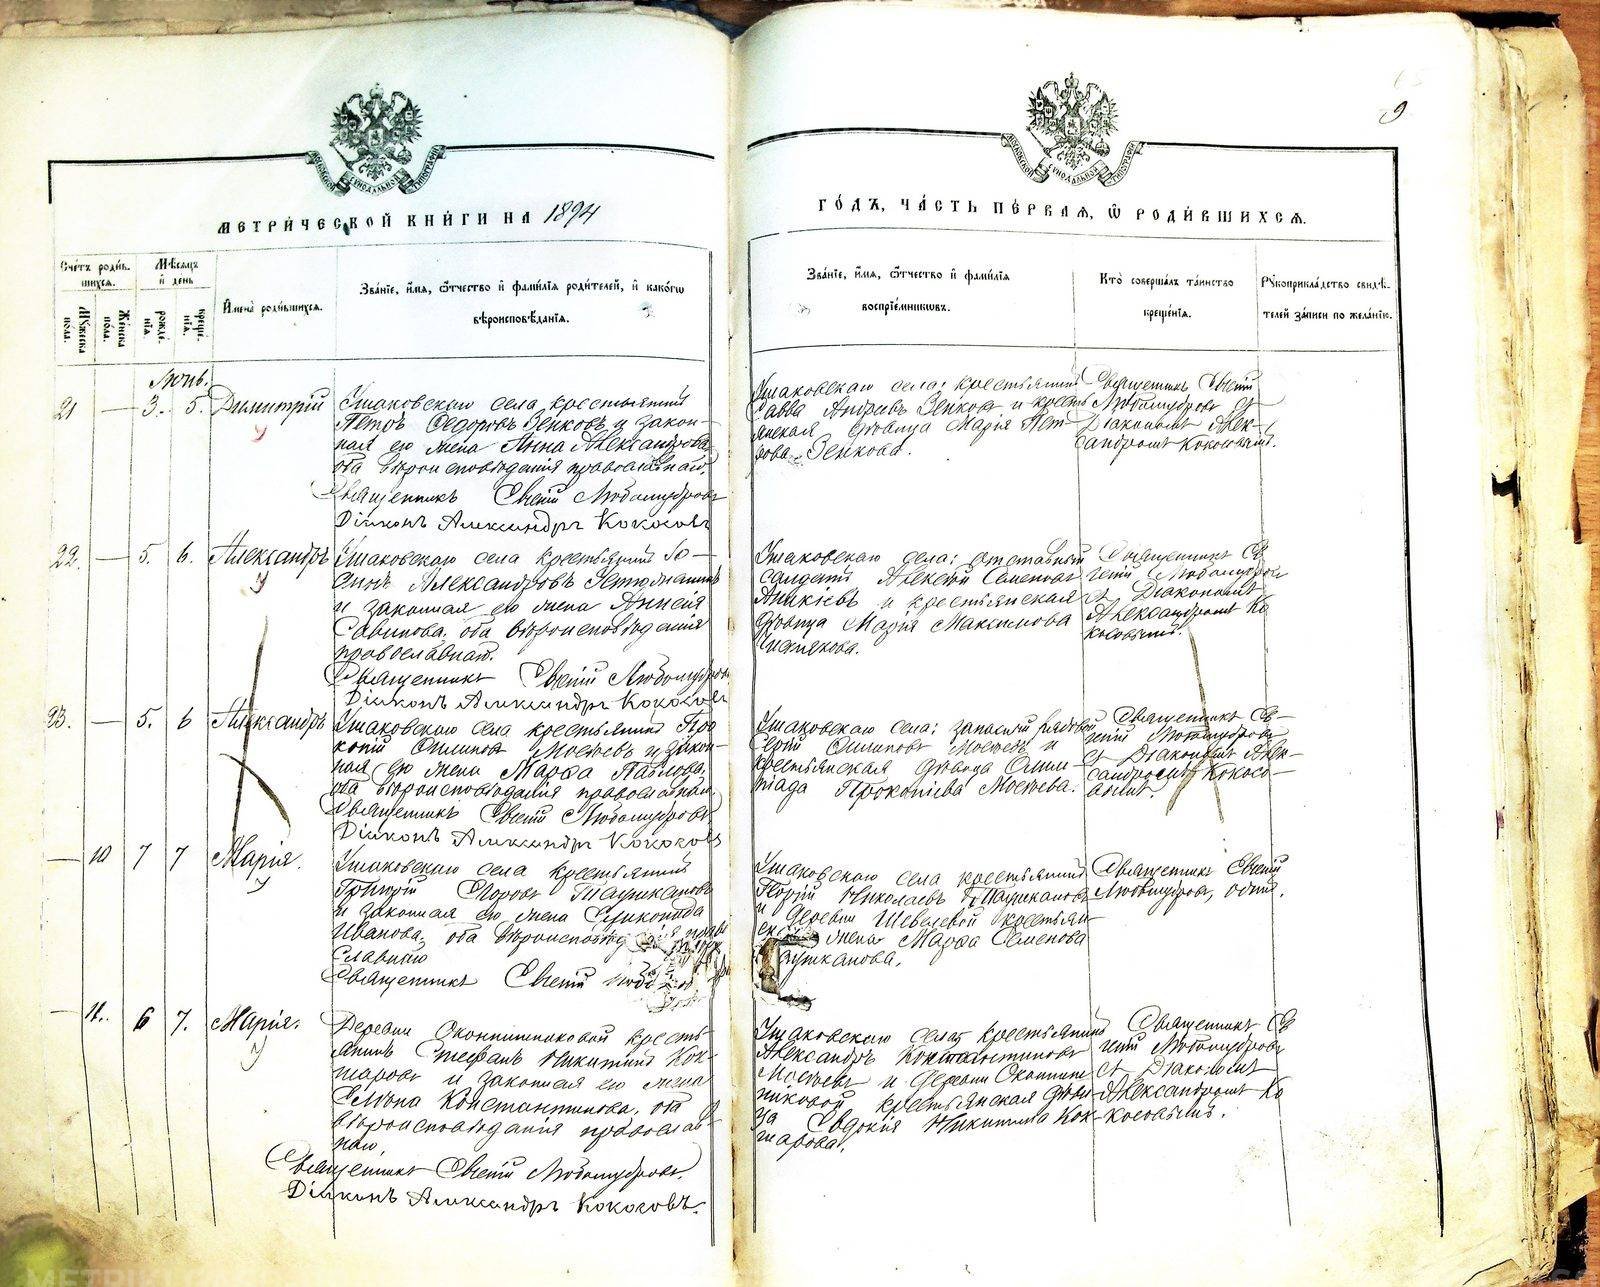 9
МОСКОВСКОЙ СѴНОДАЛЬНОЙ ТИПОГРАФІИ
МОСКОВСКОЙ СѴНОДАЛЬНОЙ ТИПОГРАФІИ
МЕТРИ́ЧЕСКОЙ КНИ́ГИ НА 1894
ГО́ДЪ, ЧА́СТЬ ПЕ́РВАѦ, Ѡ҆ РОДИ́ВШИХСѦ.
Сче́тъ роди́в-
шихсѧ.
Мꙋжеска по́ла.
Же́нска по́ла.
Мѣ́сѧцъ
и҆ день
рожде́-
нїѧ.
креще́-
нїѧ.
И҆мена̀ роди́вшихсѧ.
Зва́нїе, и҆́мѧ, ѻ҆́тчество и҆ фами́лїѧ роди́телей, и҆ како́гѡ
вѣроисповѣ́данїѧ.
Зва́нїе, и҆́мѧ, ѻ҆́тчество и҆ фами́лїѧ
воспрїе́мникѡвъ.
Кто̀ соверша́лъ та́инство
креще́нїѧ.
Рꙋкоприкла́дство свидѣ́-
телей за́писи по жела́нїю.
Іюнь.
21 — 3. 5. Димитрій
Ушаковскаго села крестьянинъ
Петръ Ѳедоровъ Зенковъ и закон-
ная его жена Анна Александрова
оба вѣроисповѣданія православнаго.
Священникъ Евгеній Любомудровъ
Діаконъ Александръ Кокосовъ
Ушаковскаго села: крестьянинъ
Савва Андреевъ Зенковъ и кресть
янская дѣвица Марія Пет-
рова Зенкова.
Священникъ Евгеній
Любомудровъ съ
Діакономъ Алек-
сандромъ Кокосовымъ.
22. — 5. 6. Александръ
Ушаковскаго села крестьянинъ
Александровъ
и законная его жена Анисія
Саввинова, оба вѣроисповѣданія
православнаго.
Священникъ Евгеній Любомудровъ
Діаконъ Александръ Кокосовъ
Ушаковскаго села: отставной
солдатъ Алексѣй Семеновъ
Аникіевъ и крестьянская
дѣвица Марія Максимова
Священникъ Ев
геній Любомудровъ
съ Діакономъ
Александромъ Ко
косовымъ.
23. — 5. 6 Александръ
Ушаковскаго села крестьянинъ Про
копій Филиповъ Мостевъ и закон-
ная его жена Марѳа Павлова,
оба вѣроисповѣданія православнаго.
Священникъ Евгеній Любомудровъ
Діаконъ Александръ Кокосовъ
Ушаковскаго села: запасный рядовой
Сергій Филиповъ Мостевъ и
крестьянская дѣвица Олим-
піада Прокопіева Мостева.
Священникъ Ев-
геній Любомудровъ
съ Діакономъ Алек-
сандромъ Кокосо-
вымъ.
— 10 7 7 Марія.
Ушаковскаго села крестьянинъ
Григорій Егоровъ Таушкановъ
и законная его жена
Иванова, оба вѣроисповѣданія право
славнаго
Священникъ Евгеній
Ушаковскаго села крестьянинъ
Георгій Николаевъ Таушкановъ
и деревни Шевелевой крестьян-
жена Марѳа Семенова
Таушканова.
Священникъ Евгеній
Любомудровъ, одинъ.
— 11. 6 7. Марія.
Деревни крестья-
нинъ Стефанъ Никитинъ Кок-
шаровъ и законная его жена
Елена Константинова, оба
вѣроисповѣданія православ-
наго,
Священникъ Евгеній Любомудровъ.
Діаконъ Александръ Кокосовъ.
Ушаковскаго села крестьянинъ
Александръ Константиновъ
Мостевъ и деревни
крестьянская дѣви-
ца Евдокія Никитина Кок-
шарова.
Священникъ Ев
геній Любомудровъ
съ Діакономъ
Александромъ Ко
косовымъ.